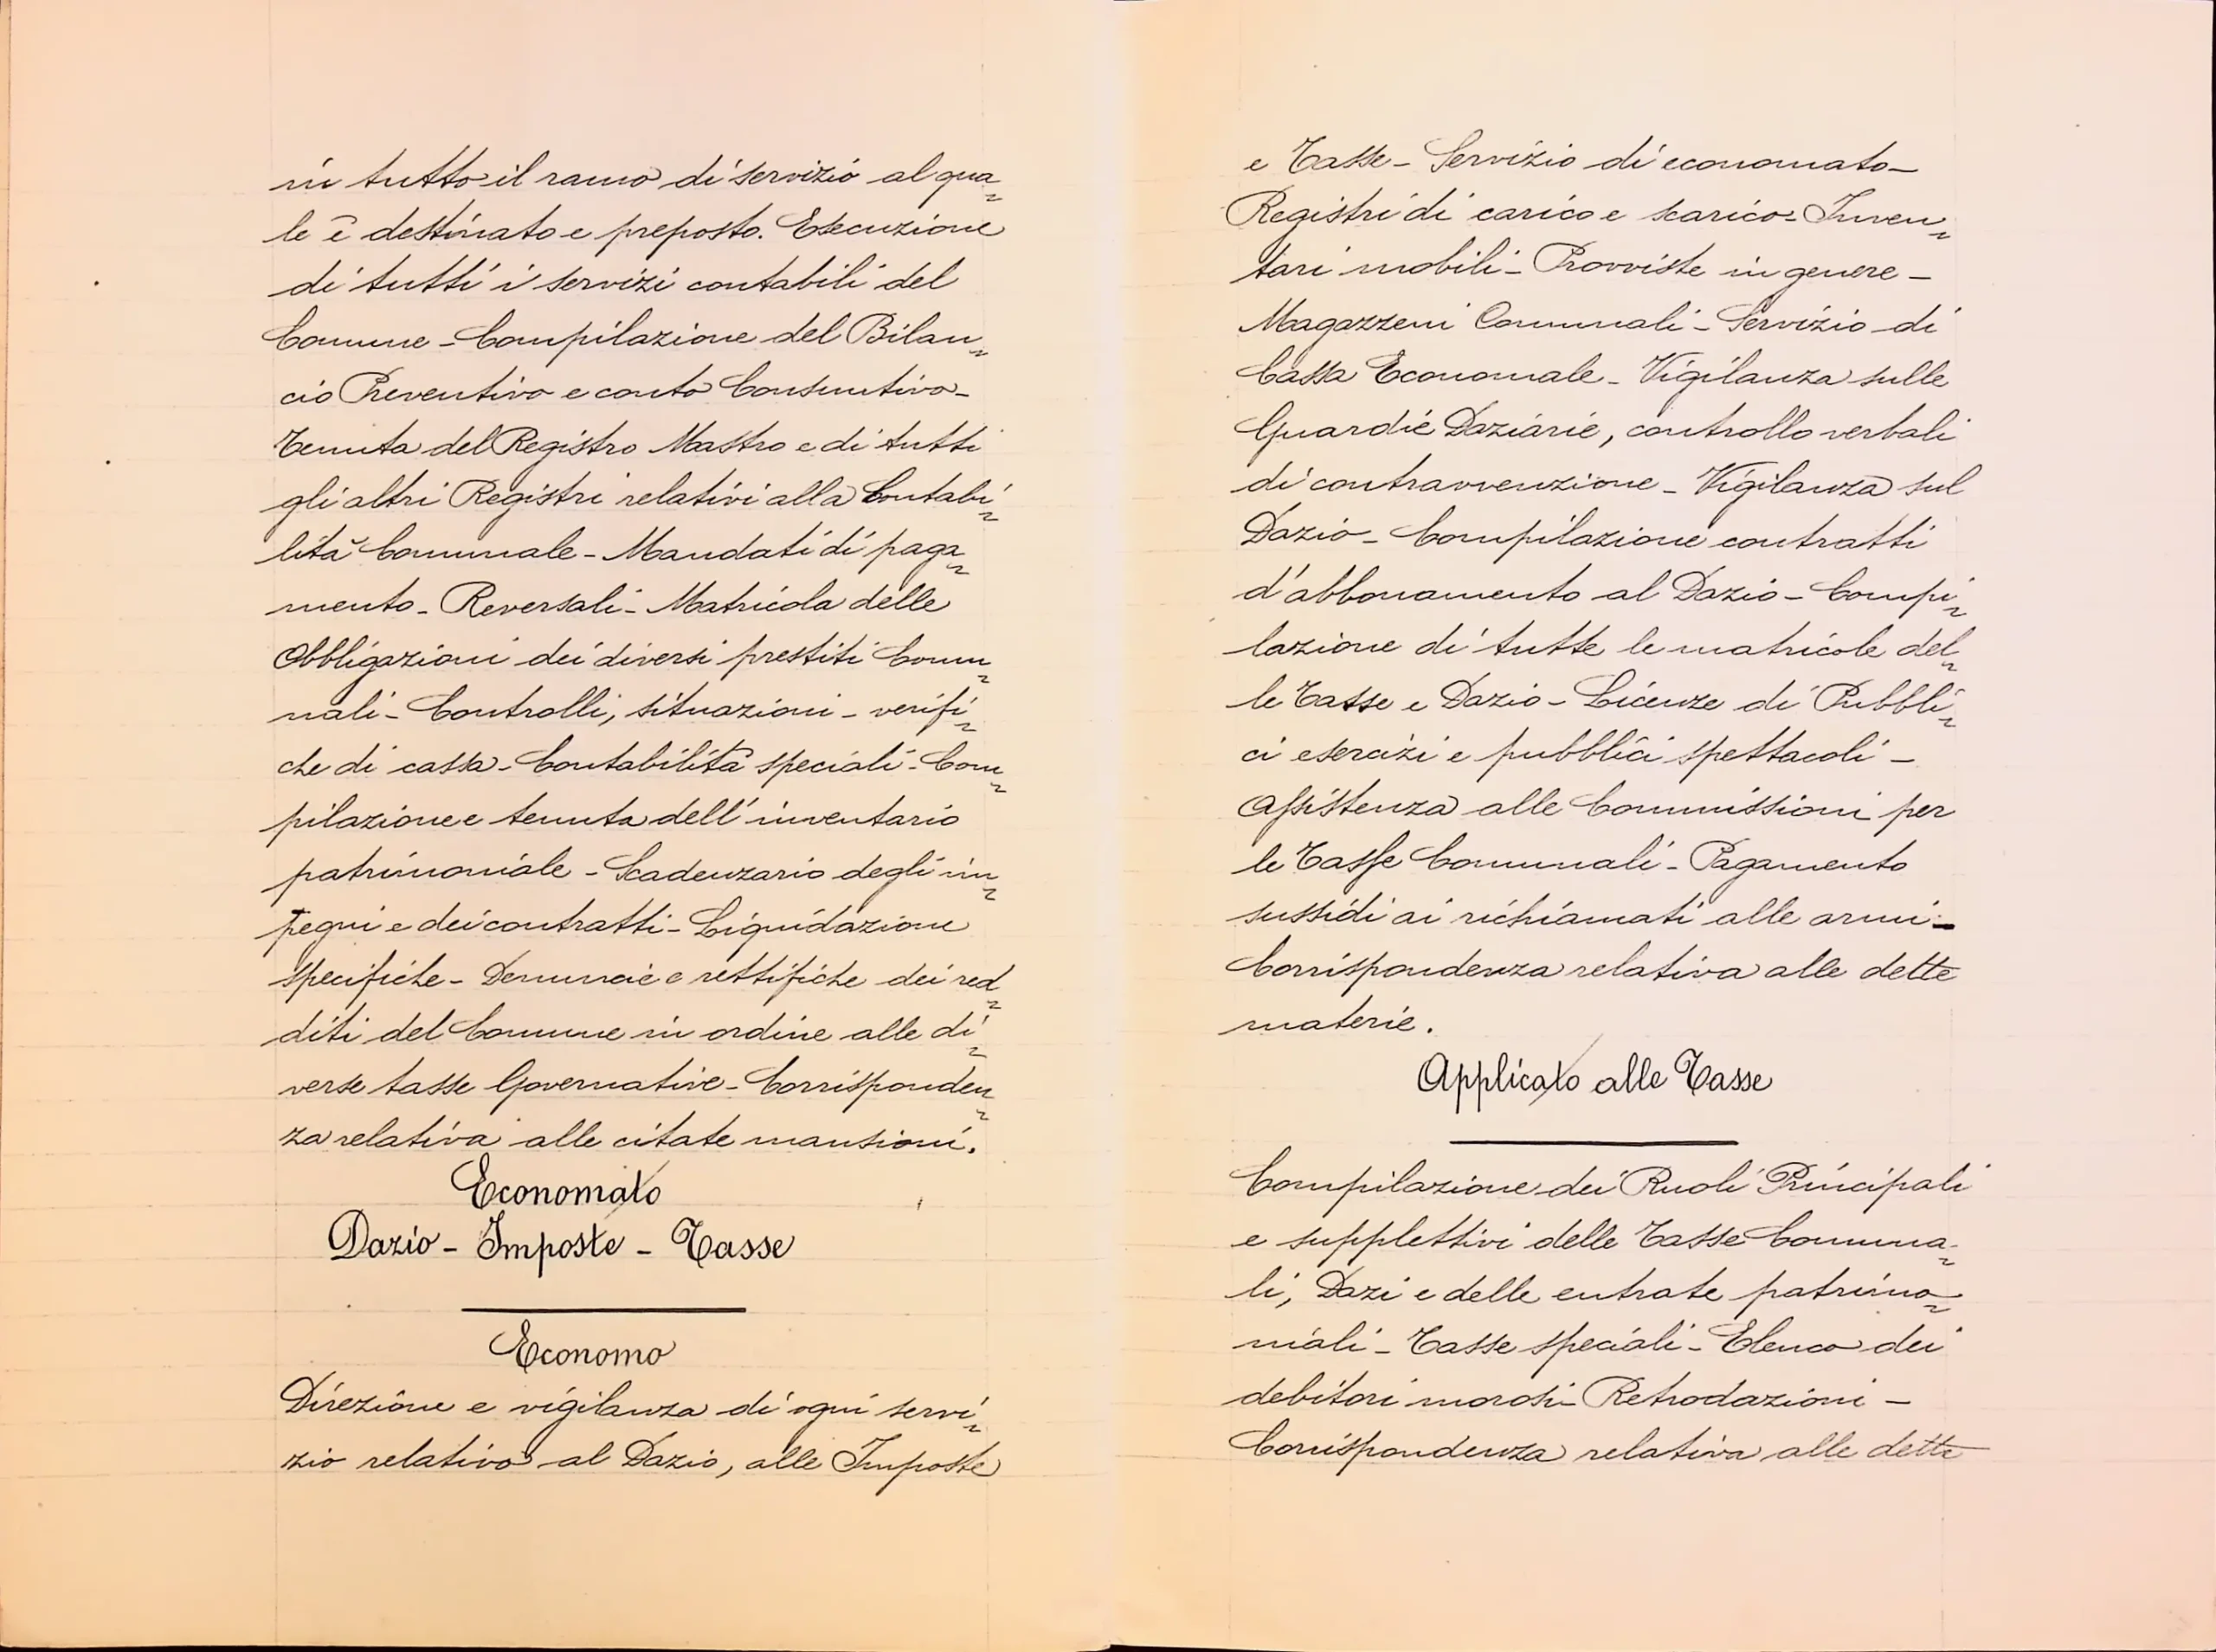 in tutto il ramo di servizio al qua
le è destinato e preposto. Esecuzione
di tutti i servizi contabili del
Comune - Compilazione del Bilan
cio Preventivo e conto Consuntivo -
Tenuta del Registro Mastro e di tutti
gli altri Registri relativi alla Contabi
lità Comunale - Mandati di paga
mento - Reversali - Matricola delle
Obbligazioni dei diversi prestiti Comu
nali - Controlli, situazioni - verifi
che di cassa - Contabilità speciali - Com
pilazione e tenuta dell'inventario
patrimoniale - Scadenzario degli im
pegni e dei contratti - Liquidazione
specifiche - Denuncie e rettifiche dei red
diti del Comune in ordine alle di
verse tasse Governative - Corrisponden
za relativa alle citate mansioni.
Economato
Dazio - Imposte - Tasse
Economo
Direzione e vigilanza di ogni servi
zio relativo al Dazio, alle Imposte
e Tasse - Servizio di economato -
Registri di carico e scarico - Inven
tari mobili - Provviste in genere -
Magazzeni Comunali - Servizio di
Cassa Economale - Vigilanza sulle
Guardie Daziarie, controllo verbali
di contravvenzione - Vigilanza sul
Dazio - Compilazione contratti
d'abbonamento al Dazio - Compi
lazione di tutte le matricole del
le Tasse e Dazio - Licenze di Pubbli
ci esercizi e pubblici spettacoli -
Assistenza alle Commissioni per
le Tasse Comunali - Pagamento
sussidi ai richiamati alle armi -
Corrispondenza relativa alle dette
materie.
Applicato alle Tasse
Compilazione dei Ruoli Principali
e supplettivi delle Tasse Comuna
li, Dazi e delle entrate patrimo
niali - Tasse speciali - Elenco dei
debitori morosi - Retrodazioni -
Corrispondenza relativa alle dette